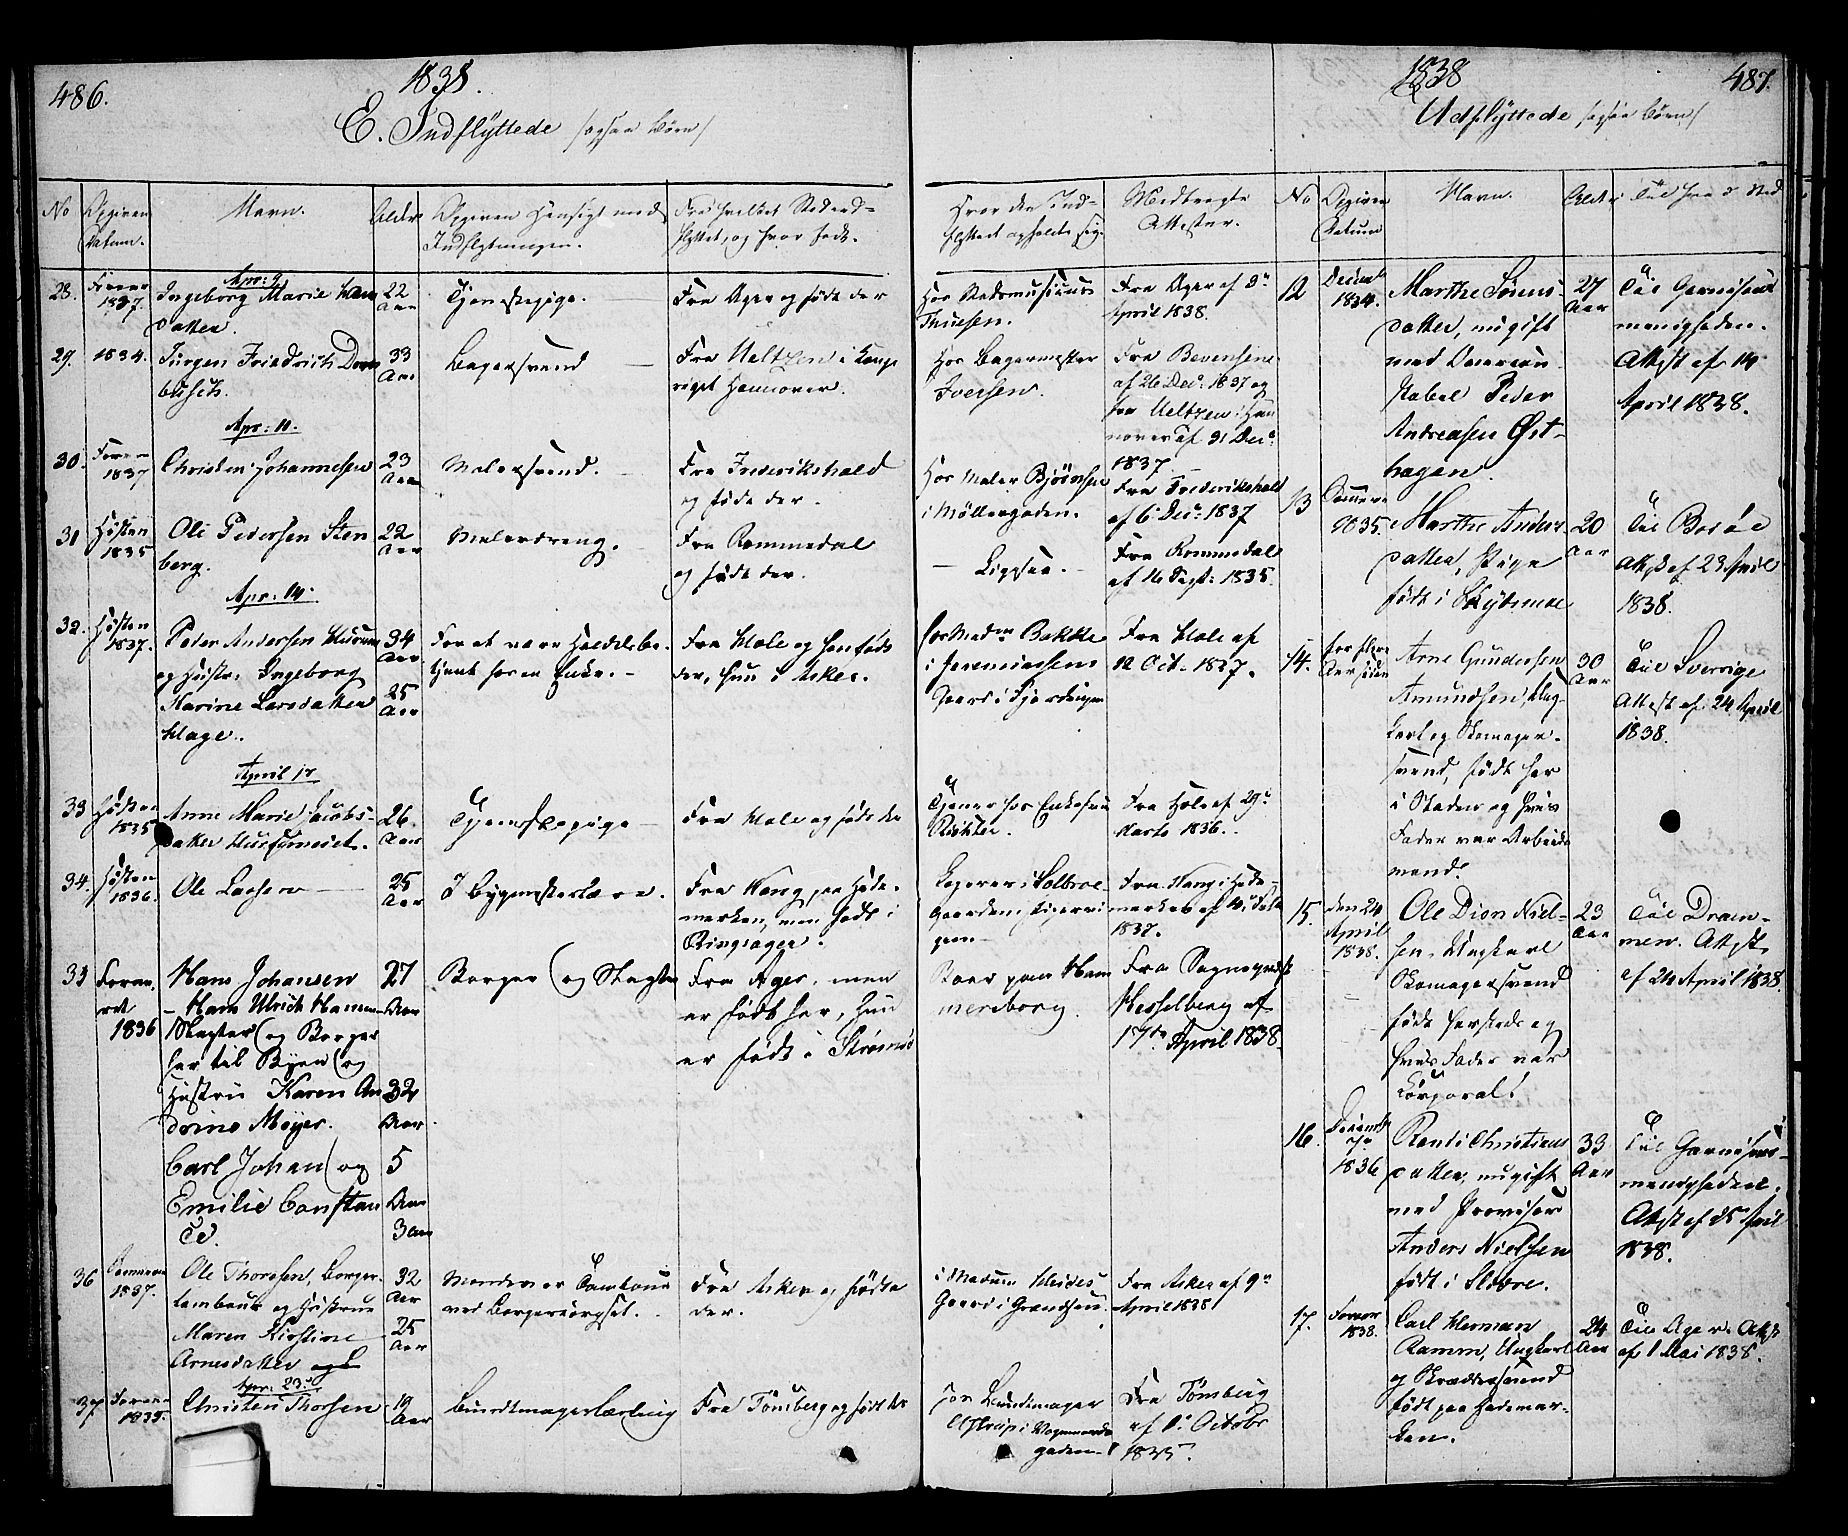 486.
1838.
E. Indflyttede /ogsaa Børn/
No
Opgiven Datum.
Navn.
Alder
Opgiven Hensigt med Indflytningen.
Fra hvilket Sted indflyttet, og hvor født.
Hvor den Indflyttede opholder sig.
Medbragte Attester.
Apr: 9.
28. Foraar 1837. Ingeborg Marie datter. 22 Aar Tjenestepige. Fra Ager og født der Hos Stadsmusicus Thuesen. Fra Ager af April 1838.
29. 1834. Jürgen Friedrich Dornbusch. 33 Aar Bagersvend Fra Ueltzen i Kongeriget Hannover. Hos Bagermester Iversen. Fra Bevensen af 26 Dec: 1837 og fra Ueltzen i Hannover af 31 Dec: 1837
Apr: 11.
30. Foraar 1837 Christen Johannesen 23 Aar Malersvend. Fra Frederikshald og født der. Hos Maler Bjørnsen i Møllergaden. Fra Frederikshald af 6 Dec: 1837
31 Høsten 1835 Ole Pedersen Stenberg. 22 Aar Malerdreng. Fra Rommedal og født der. Fra Rommedal af 16 Sept: 1835.
Apr: 14.
32. Høsten 1837. Peder Andersen og Hustru Ingeborg Karine Larsdatter 34 Aar 25 Aar For at være Handelsbetjent hos en Enke. Fra Hole og han født der, hun i Asker. hos Madm Bakke i gaard i Fjerdingen Fra Hole af 12 Oct. 1837.
April 17
33 Høsten 1835 Anne Marie Jacobsdatter 26. Aar Tjenestepige Fra Hole og født der Tjener hos Enkefru Richter. Fra Hole af 29 Marts 1836.
34. Høsten 1836. Ole Larsen 25 Aar I bygmesterlære. Fra Vang, paa Hedemarken, men født i Ringsager. Logerer i gaarden, Fra Vang i Hedemarken af 1837.
35 Foraaret 1836 Hans Johansen Hans Ulrich Slagter (og Borger her til Byen (og Hustru Karen Andrine Meyer. Carl Johan (og Emilie Constance. 27 Aar 32 Aar 5 Aar 3 aar Borger (og Slagter Fra Ager, men er født her, Hun er født i Strømsø Boer paa Hammersborg. Fra Sognepræst Hesselberg af 17de April 1838.
36 Sommeren 1837. Ole Thoresen, Borgertambour og Hustrue Maren Kirstine Arnesdatter 32 Aar 25 Aar Manden er Tambour ved Borgercorpset. Fra Asker og fødte der. i Madam Heides Gaard i Grændsen. Fra Asker af 9de April 1838
Apr: 23.
37. Foraar 1835. Christen Thorsen 19 Aar Buntmagerlærling Fra Tønsberg og født der hos Buntmager i Vognmandsgaden. Fra Tønsberg af 1 October 1835.
1838
487.
Udflyttede /ogsaa Børn/
No
Opgiven Datum
Navn.
Alder
Til hvad Sted
12 Decemb 1834. Marthe Sørensdatter, nugift med Peder Andreasen Østhagen. 27 Aar Til Garnisonsmenigheden. Attest af 14 April 1838.
13 Sommeren 1835. Marthe Andersdatter, Pige født i Skydsmoe 20 Aar Til Attest af 23 April 1838.
14. for flere Aar siden Arne Gundersen Amundsen, Ungkarl og Skomagersvend, født her i Staden og hvis Fader var Arbeidsmand. 30 Aar Til Sverrige Attest af 24 April 1838.
15. den 24 April 1838. Ole Dion Nielsen, Ungkarl Skomagersvend født hersteds og hvis Fader var Corporal. 23 Aar Til Drammen. Attest af 24 April 1838.
16. Decemb 1836 Randi Christiansdatter, nugift med Provisor Anders Nielsen født i Slidre. 33 Aar Til Garnisonsmenigheden. Attest af 25 April 1838.
17. Foraar 1838. Carl Herman Ramm, Ungkarl og Skræddersvend født paa Hedemarken. 24 Aar Til Ager. Attest af 1 Mai 1838.